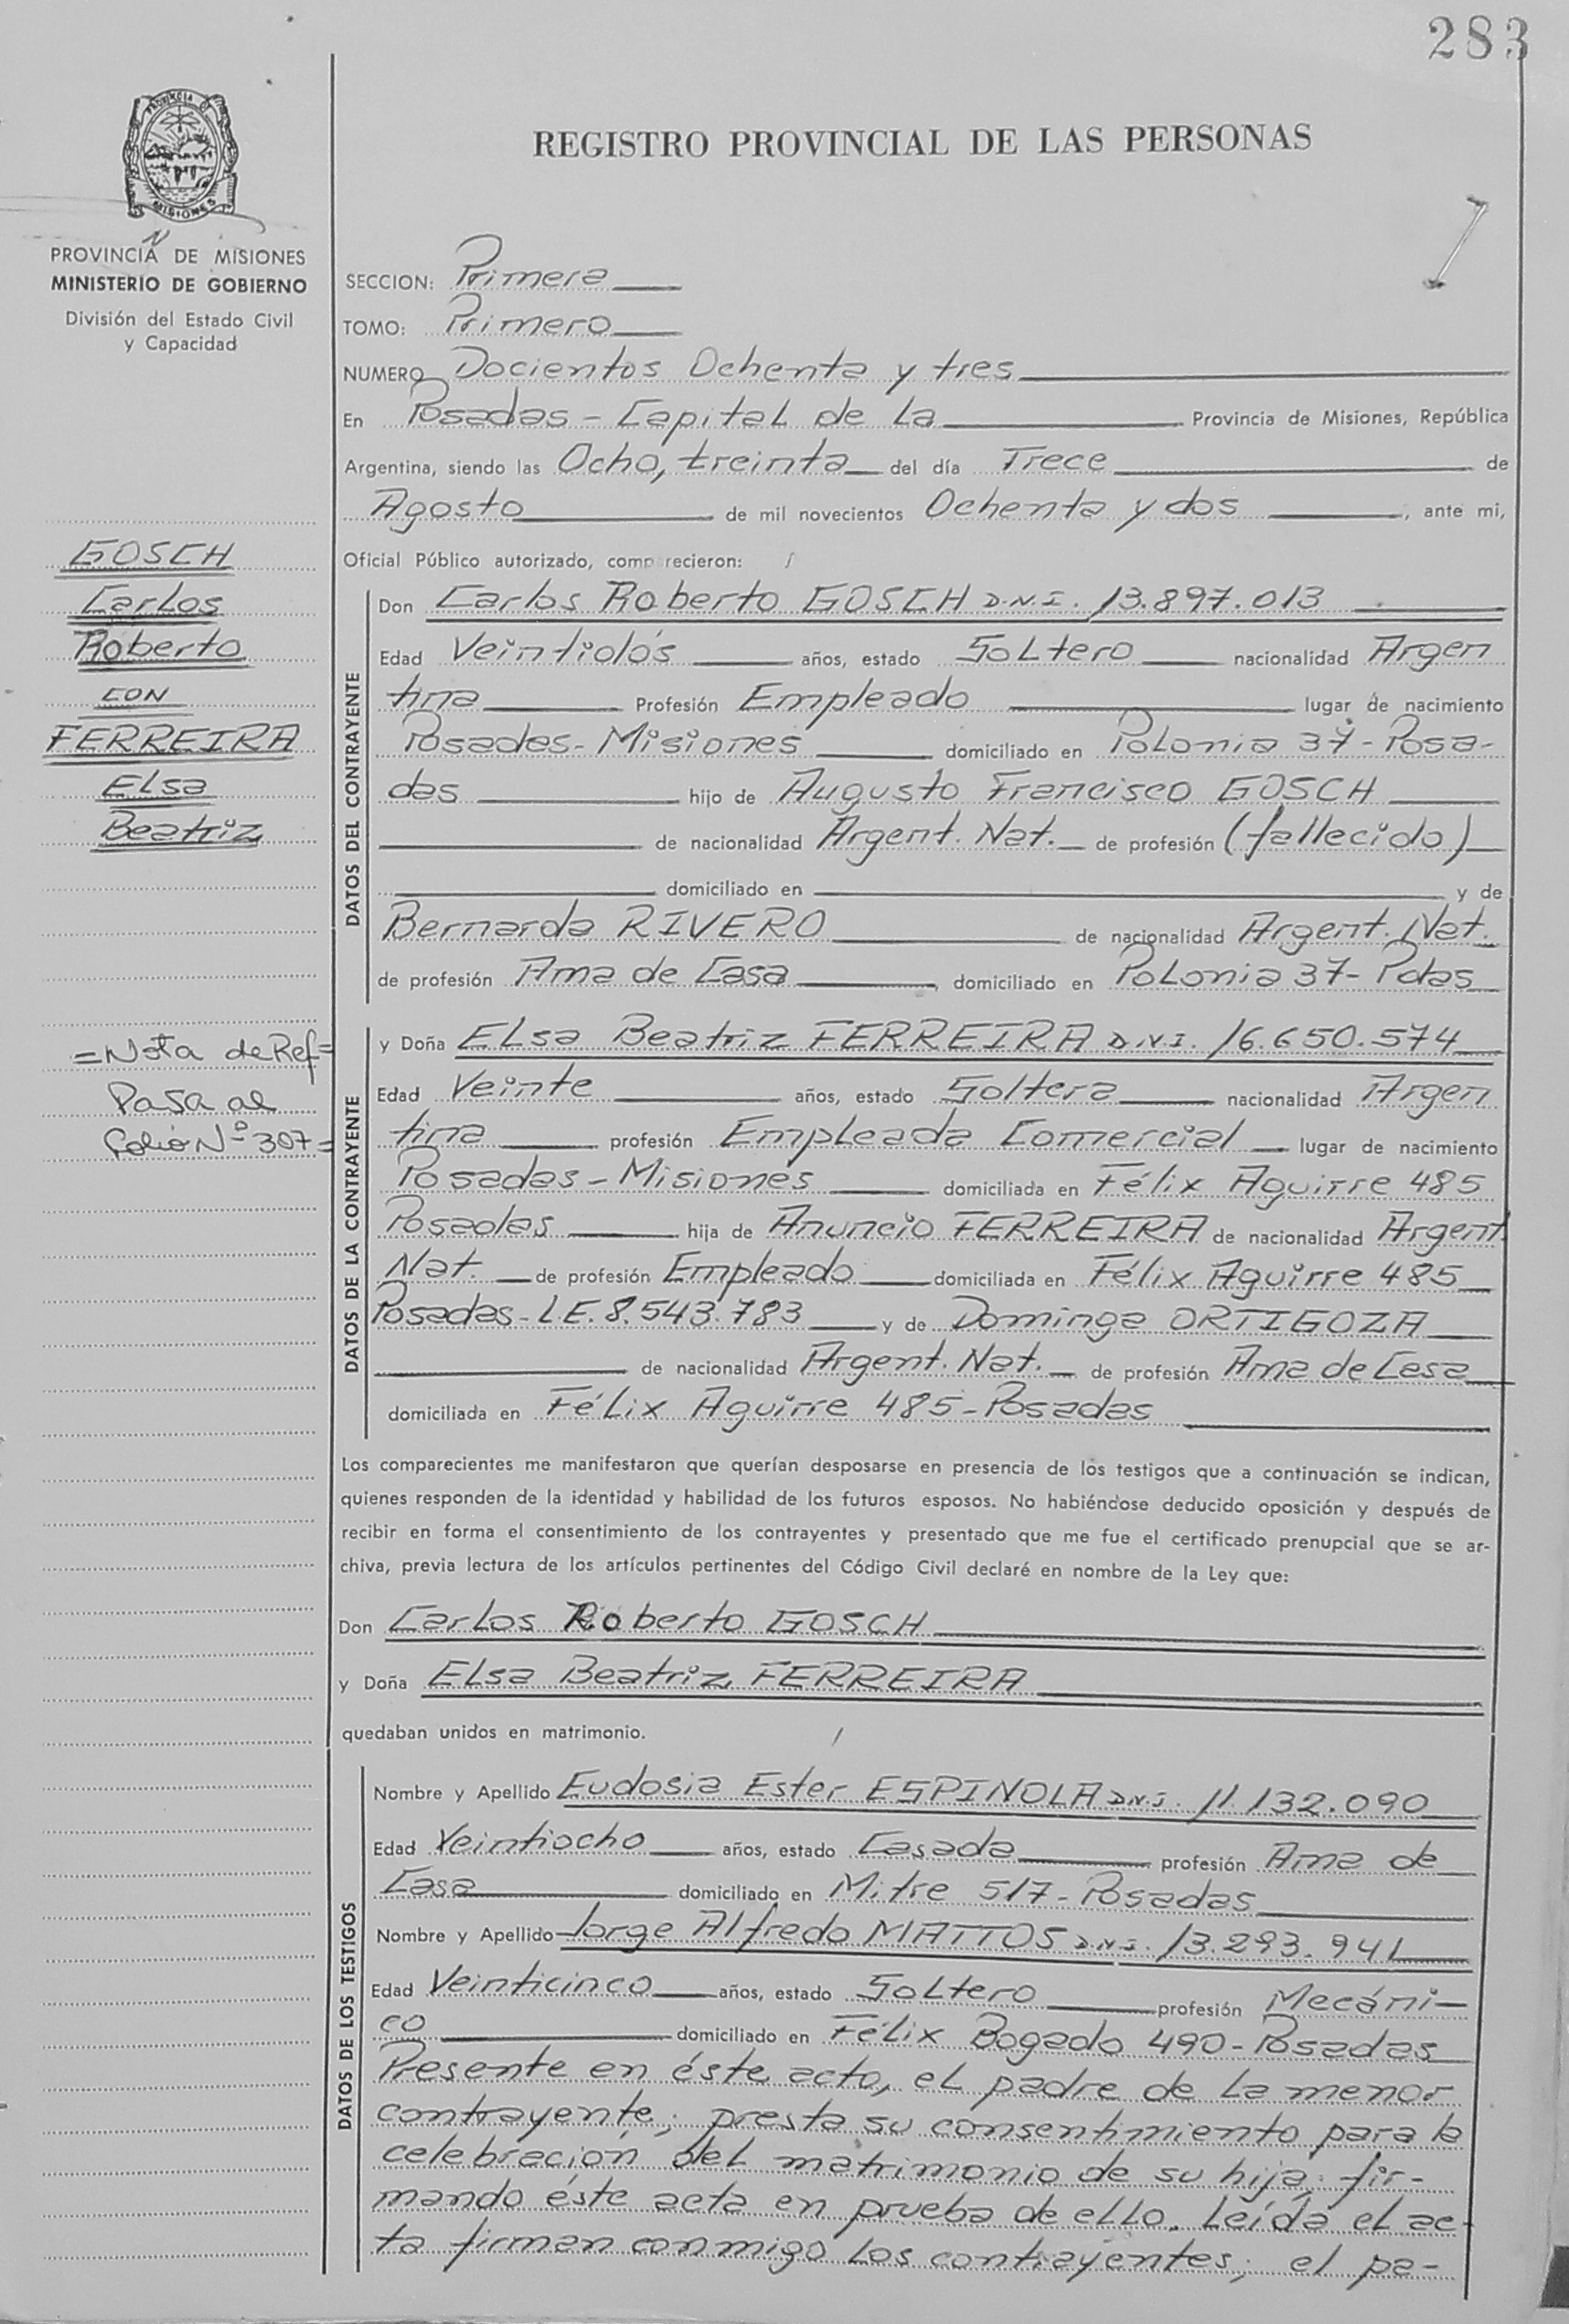 283
PROVINCIA DE
MISIONES
REGISTRO PROVINCIAL DE LAS PERSONAS
PROVINCIA DE MISIONES
MINISTERIO DE GOBIERNO
División del Estado Civil
y Capacidad
GOSCH
Carlos
Roberto
CON
FERREIRA
Elsa
Beatriz
=Nota de Ref=
Pasa al
Folio Nº 307=
SECCION: Primera
TOMO: Primero
NUMERO Docientos Ochenta y tres
En Posadas - Capital de La Provincia de Misiones, República
Argentina, siendo las Ocho, treinta del día Trece de
Agosto de mil novecientos Ochenta y dos, ante mi,
Oficial Público autorizado, comparecieron:
DATOS DEL CONTRAYENTE
Don Carlos Roberto GOSCH D.N.I. 13.897.013
Edad Veintidós años, estado Soltero nacionalidad Argen
tina Profesión Empleado lugar de nacimiento
Posadas - Misiones domiciliado en Polonia 37 - Posa-
das hijo de Augusto Francisco GOSCH
de nacionalidad Argent. Nat. de profesión (fallecido)
domiciliado en y de
Bernarda RIVERO de nacionalidad Argent. Nat.
de profesión Ama de Casa, domiciliado en Polonia 37 - Pdas
DATOS DE LA CONTRAYENTE
y Doña Elsa Beatriz FERREIRA D.N.I. 16.650.574
Edad Veinte años, estado Soltera nacionalidad Argen
tina profesión Empleada Comercial lugar de nacimiento
Posadas - Misiones domiciliada en Félix Aguirre 485
Posadas hija de Anuncio FERREIRA de nacionalidad Argent.
Nat. de profesión Empleado domiciliada en Félix Aguirre 485
Posadas - L.E. 8.543.783 y de Dominga ORTIGOZA
de nacionalidad Argent. Nat. de profesión Ama de Casa
domiciliada en Félix Aguirre 485 - Posadas
Los comparecientes me manifestaron que querían desposarse en presencia de los testigos que a continuación se indican,
quienes responden de la identidad y habilidad de los futuros esposos. No habiéndose deducido oposición y después de
recibir en forma el consentimiento de los contrayentes y presentado que me fue el certificado prenupcial que se ar-
chiva, previa lectura de los artículos pertinentes del Código Civil declaré en nombre de la Ley que:
Don Carlos Roberto GOSCH
y Doña Elsa Beatriz FERREIRA
quedaban unidos en matrimonio.
DATOS DE LOS TESTIGOS
Nombre y Apellido Eudosia Ester ESPINOLA D.N.I. 11.132.090
Edad Veintiocho años, estado Casada profesión Ama de
Casa domiciliado en Mitre 517 - Posadas
Nombre y Apellido Jorge Alfredo MATTOS D.N.I. 13.293.941
Edad Veinticinco años, estado Soltero profesión Mecáni-
co domiciliado en Félix Bogado 490 - Posadas
Presente en éste acto, el padre de la menor
contrayente; presta su consentimiento para la
celebración del matrimonio de su hija; fir-
mando éste acta en prueba de ello. Leída el ac-
ta firman conmigo los contrayentes; el pa-